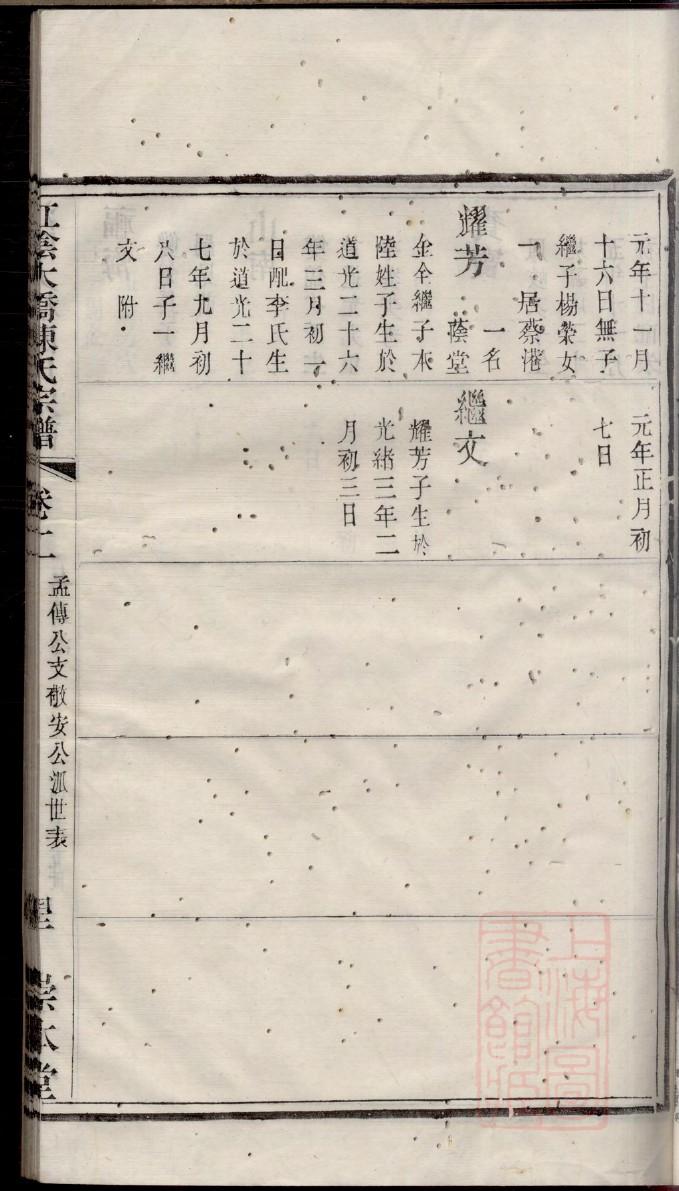 元年十一月
十六日無子
繼子楊榮女
一居蔡港
耀芳
一名
蔭堂
金全繼子本
陸姓子生於
道光二十六
年三月初一
日配李氏生
於道光二十
七年九月初
八日子一繼
文附
元年正月初
七日
繼文
耀芳子生於
光緒三年二
月初三日
江陰大橋陳氏宗譜
卷十一
孟傳公支敬安公派世表
崇本堂
上海圖書館藏